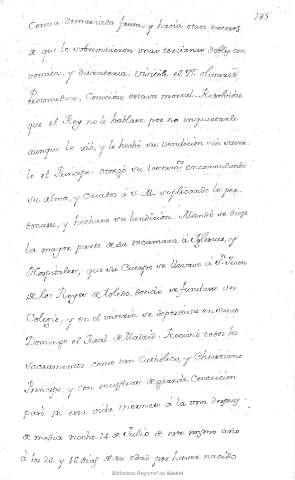 285
Comia demasiada fruta, y hacia otros excesos
de que le sobrevinieron unas tercianas dobles con
vomitos, y disenteria. Visitóle el Dr. Olivares
Protomedico. Conocióse estava mortal. Resolvióse
que el Rey no le hablase por no inquietarle
aunque le vió, y le hechó su bendicion sin
le el Principe. otorgó su testamto. encomendando
su alma, y criados á S. M. suplicando le per
donase, y hechase su bendicion. Mandó se diese
la mayor parte de su recamara á Iglesias, y
Hospitales, que su Cuerpo se llevase á Sn. Juan
de los Reyes de Toledo, donde se fundase un
Colegio, y en el interin se depositase en Santo
Domingo el Real de Madrid. Recivió todos los
sacramentos como tan Catholico, y Christiano
Principe, y con muestras de grande Contricion
pasó de esta vida Miercoles á la una despues
de media noche 14 de Julio de este mismo año
á los 22 y dias de su edad por haver nacido
Biblioteca Regional de Madrid